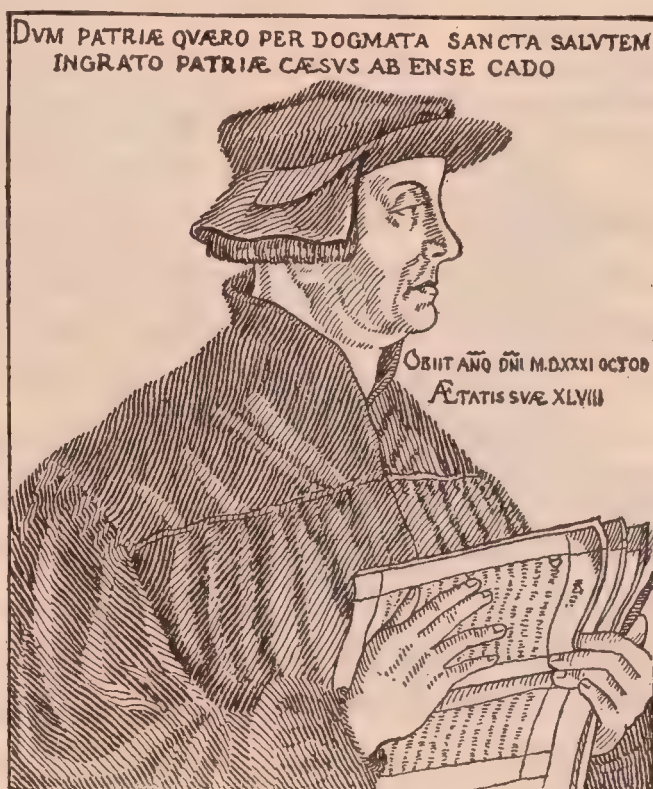 DVM PATRIÆ QVÆRO PER DOGMATA SANCTA SALVTEM
INGRATO PATRIÆ CÆSVS AB ENSE CADO
OBIIT AÑO DÑI M.D.XXXI OCTOB
ÆTATIS SVÆ XLVIII